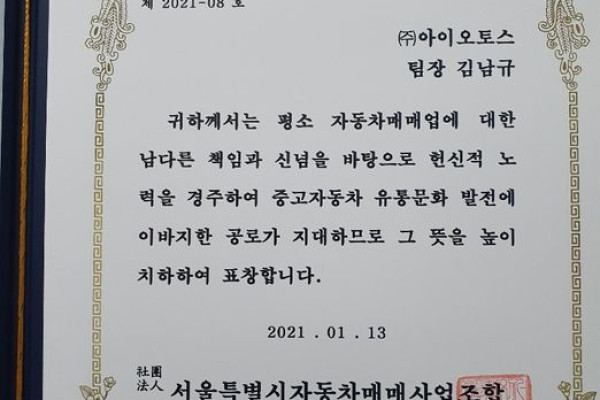 제 2021-08 호
㈜아이오토스
팀장 김남규
귀하께서는 평소 자동차매매업에 대한
남다른 책임과 신념을 바탕으로 헌신적 노
력을 경주하여 중고자동차 유통문화 발전에
이바지한 공로가 지대하므로 그 뜻을 높이
치하하여 표창합니다.
2021 . 01 . 13
社團
法人 서울특별시자동차매매사업조합